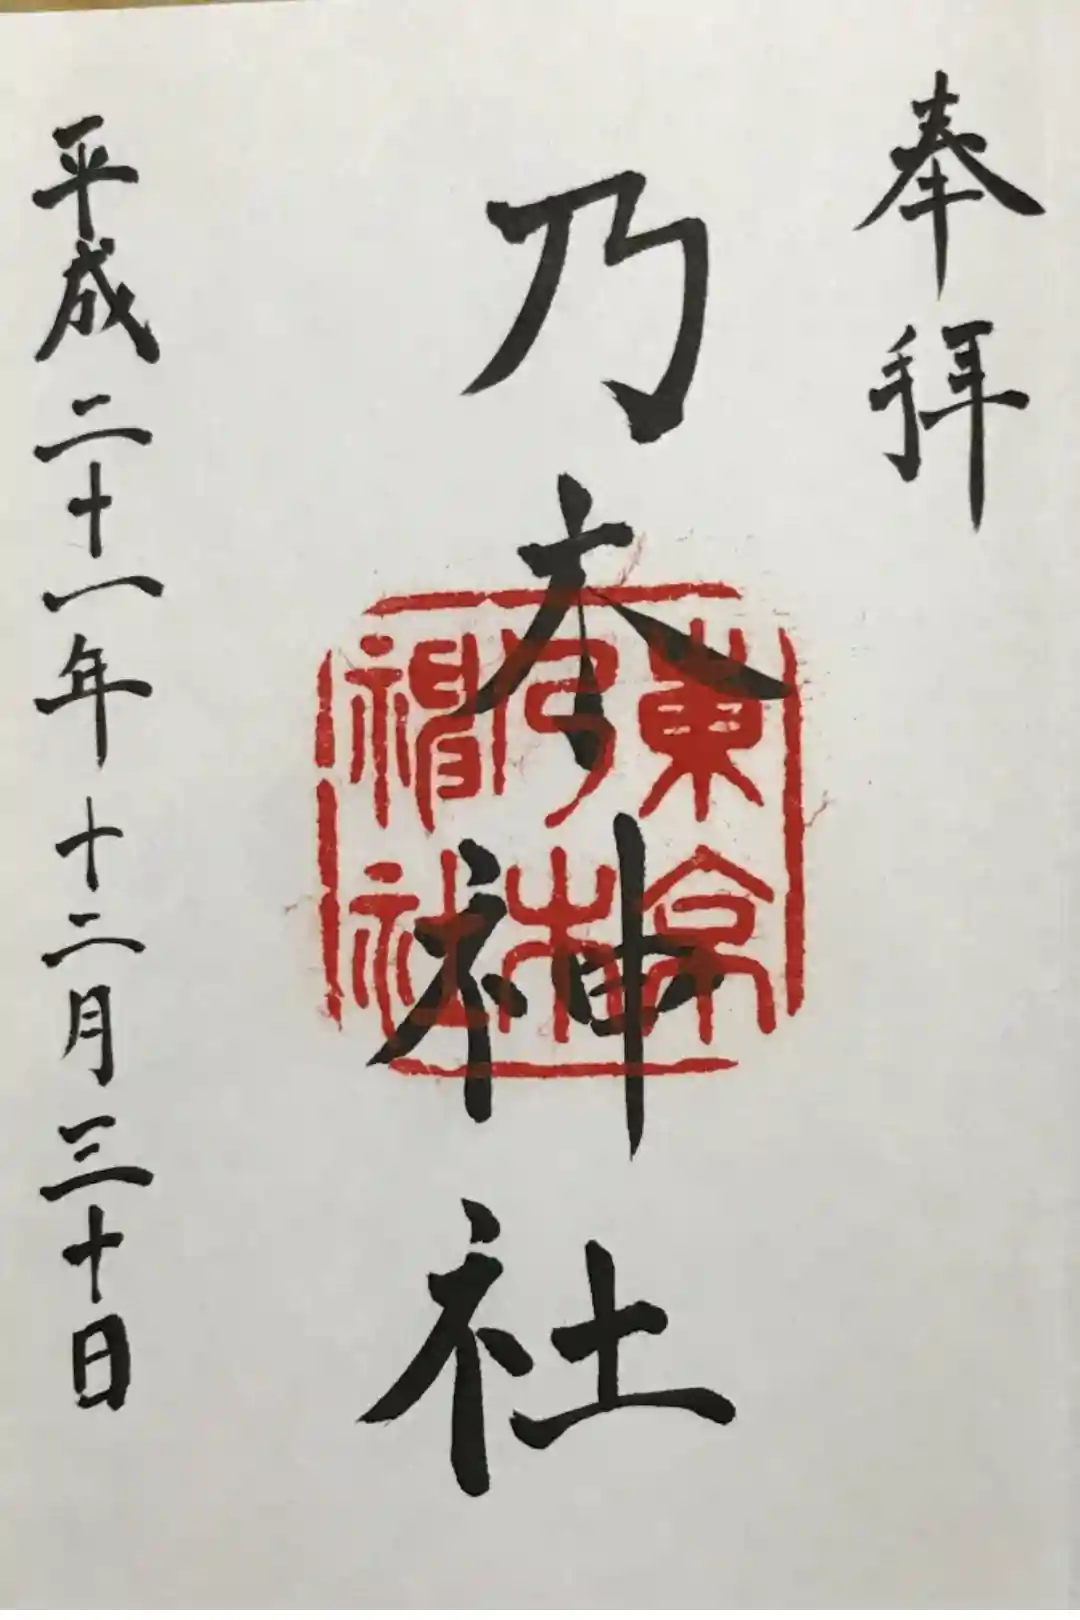 奉拝
乃木神社
東京
乃木
神社
平成二十一年十二月三十日